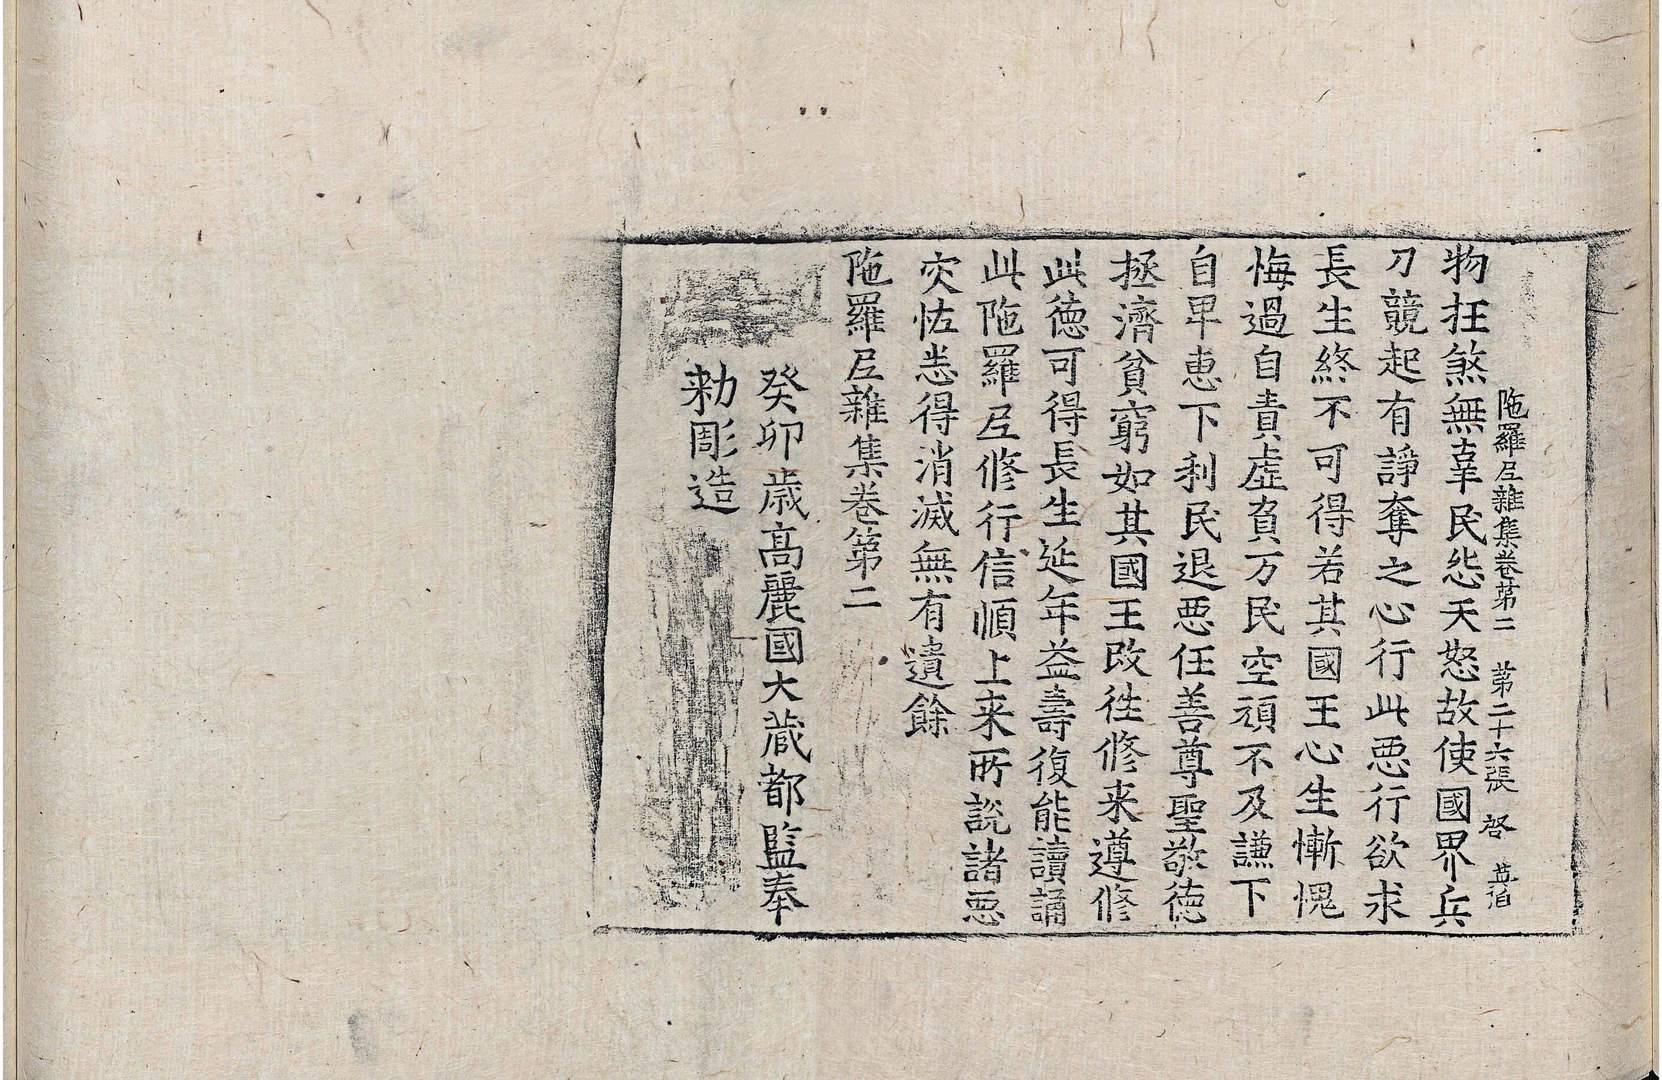 陁羅尼雜集卷第二　第二十六張　啓
物抂煞無辜民怨天怒故使國界兵
刀競起有諍奪之心行此惡行欲求
長生終不可得若其國王心生慚愧
悔過自責虛負万民空頑不及謙下
自卑惠下利民退惡任善尊聖敬德
拯濟貧窮如其國王改往修来遵修
此德可得長生延年益壽復能讀誦
此陁羅尼修行信順上来所說諸惡
灾怪悉得消滅無有遺餘
陁羅尼雜集卷第二
癸卯歲高麗國大藏都監奉
勅彫造